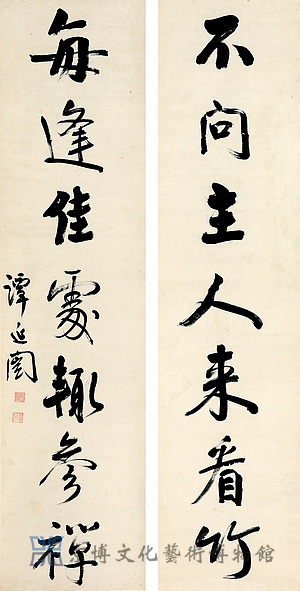 不问主人来看竹
每逢佳處輒參禪
譚延闓
博文化藝術博物館